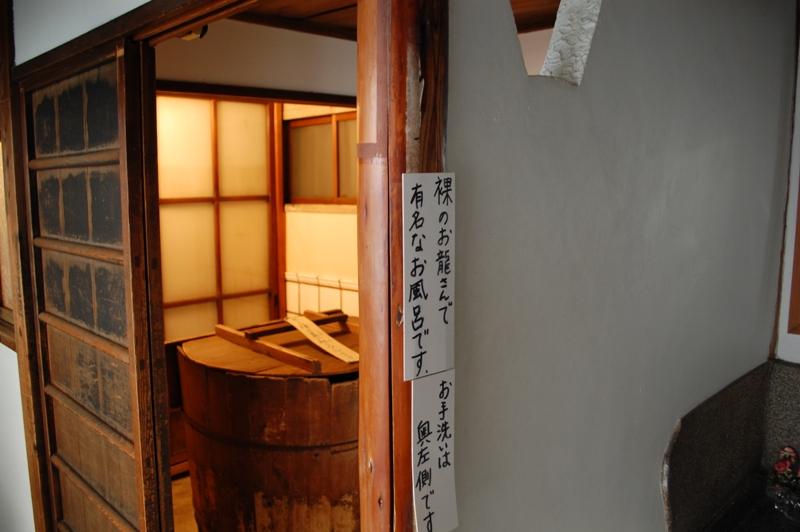 裸のお龍さんで
有名なお風呂です.
お手洗いは
奥左側です